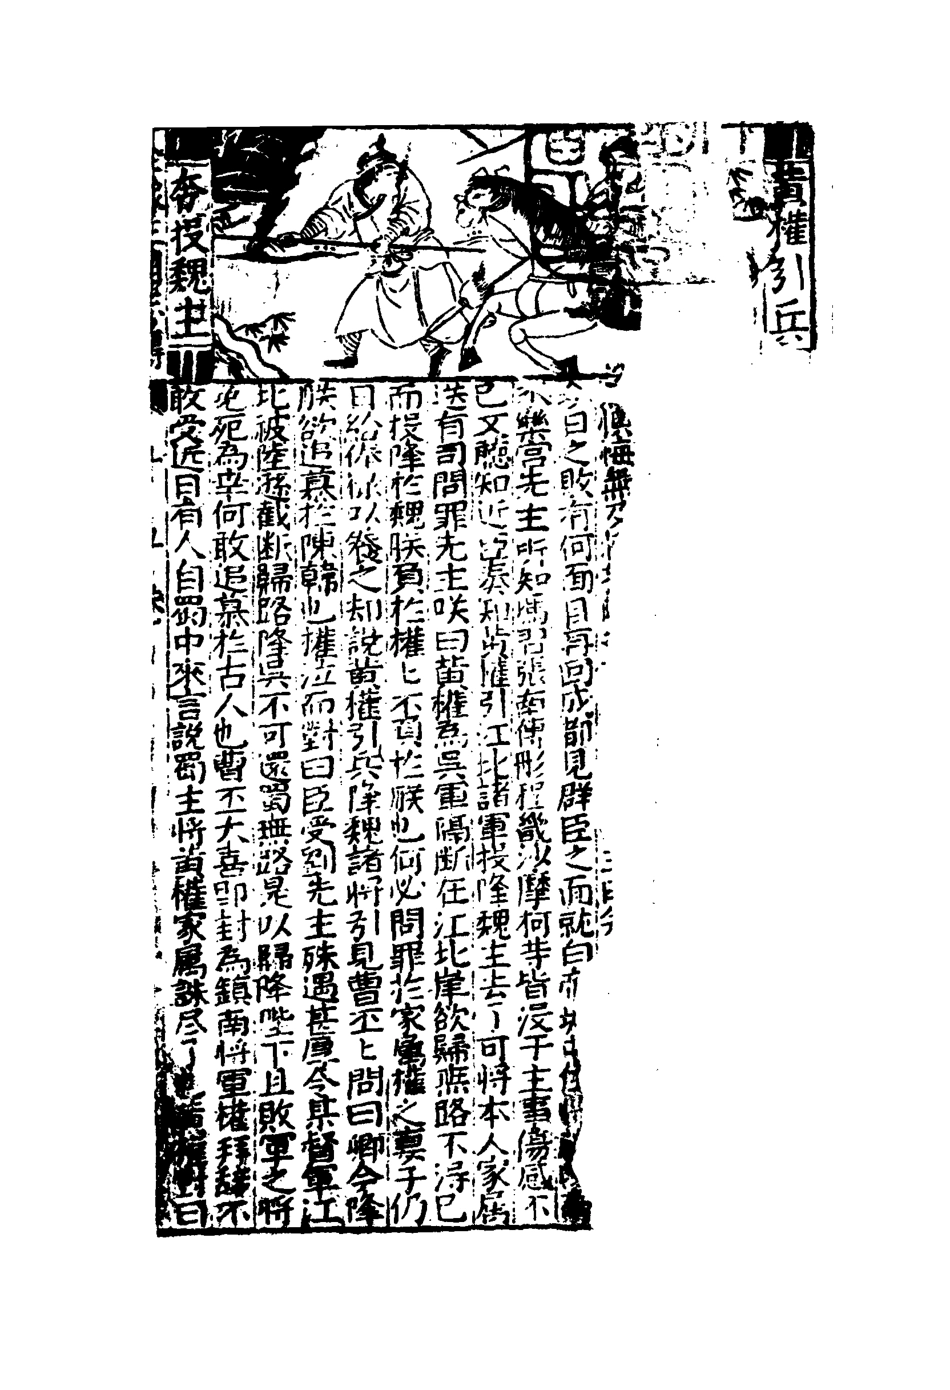 黃權引兵
奔投魏主
悔無及
今日之敗有何面目再回成都見群臣之面就白帝城
樂宮先主所知馮習張南傅彤程畿沙摩柯等皆沒于王事傷感不
已又聽知近臣奏知黃權引江北諸軍投降魏主去了可將本人家属
送有司問罪先主咲曰黃權為吳軍隔断在江北岸欲歸無路不得已
而投降於魏朕負於權匕不負於朕也何必問罪於家属權之妻子仍
曰給俸祿以養之却說黃權引兵降魏諸將引見曹丕匕問曰卿今降
朕欲追慕於陳韓也權泣而對曰臣受劉先主殊遇甚厚令某督軍江
北被陸遜截断歸路降吳不可還蜀無路是以歸降陛下且敗軍之將
免死為幸何敢追慕於古人也曹丕大喜即封為鎮南將軍權拜辞不
敢受近日有人自蜀中來言說蜀主將黃權家属誅尽了黃權對曰